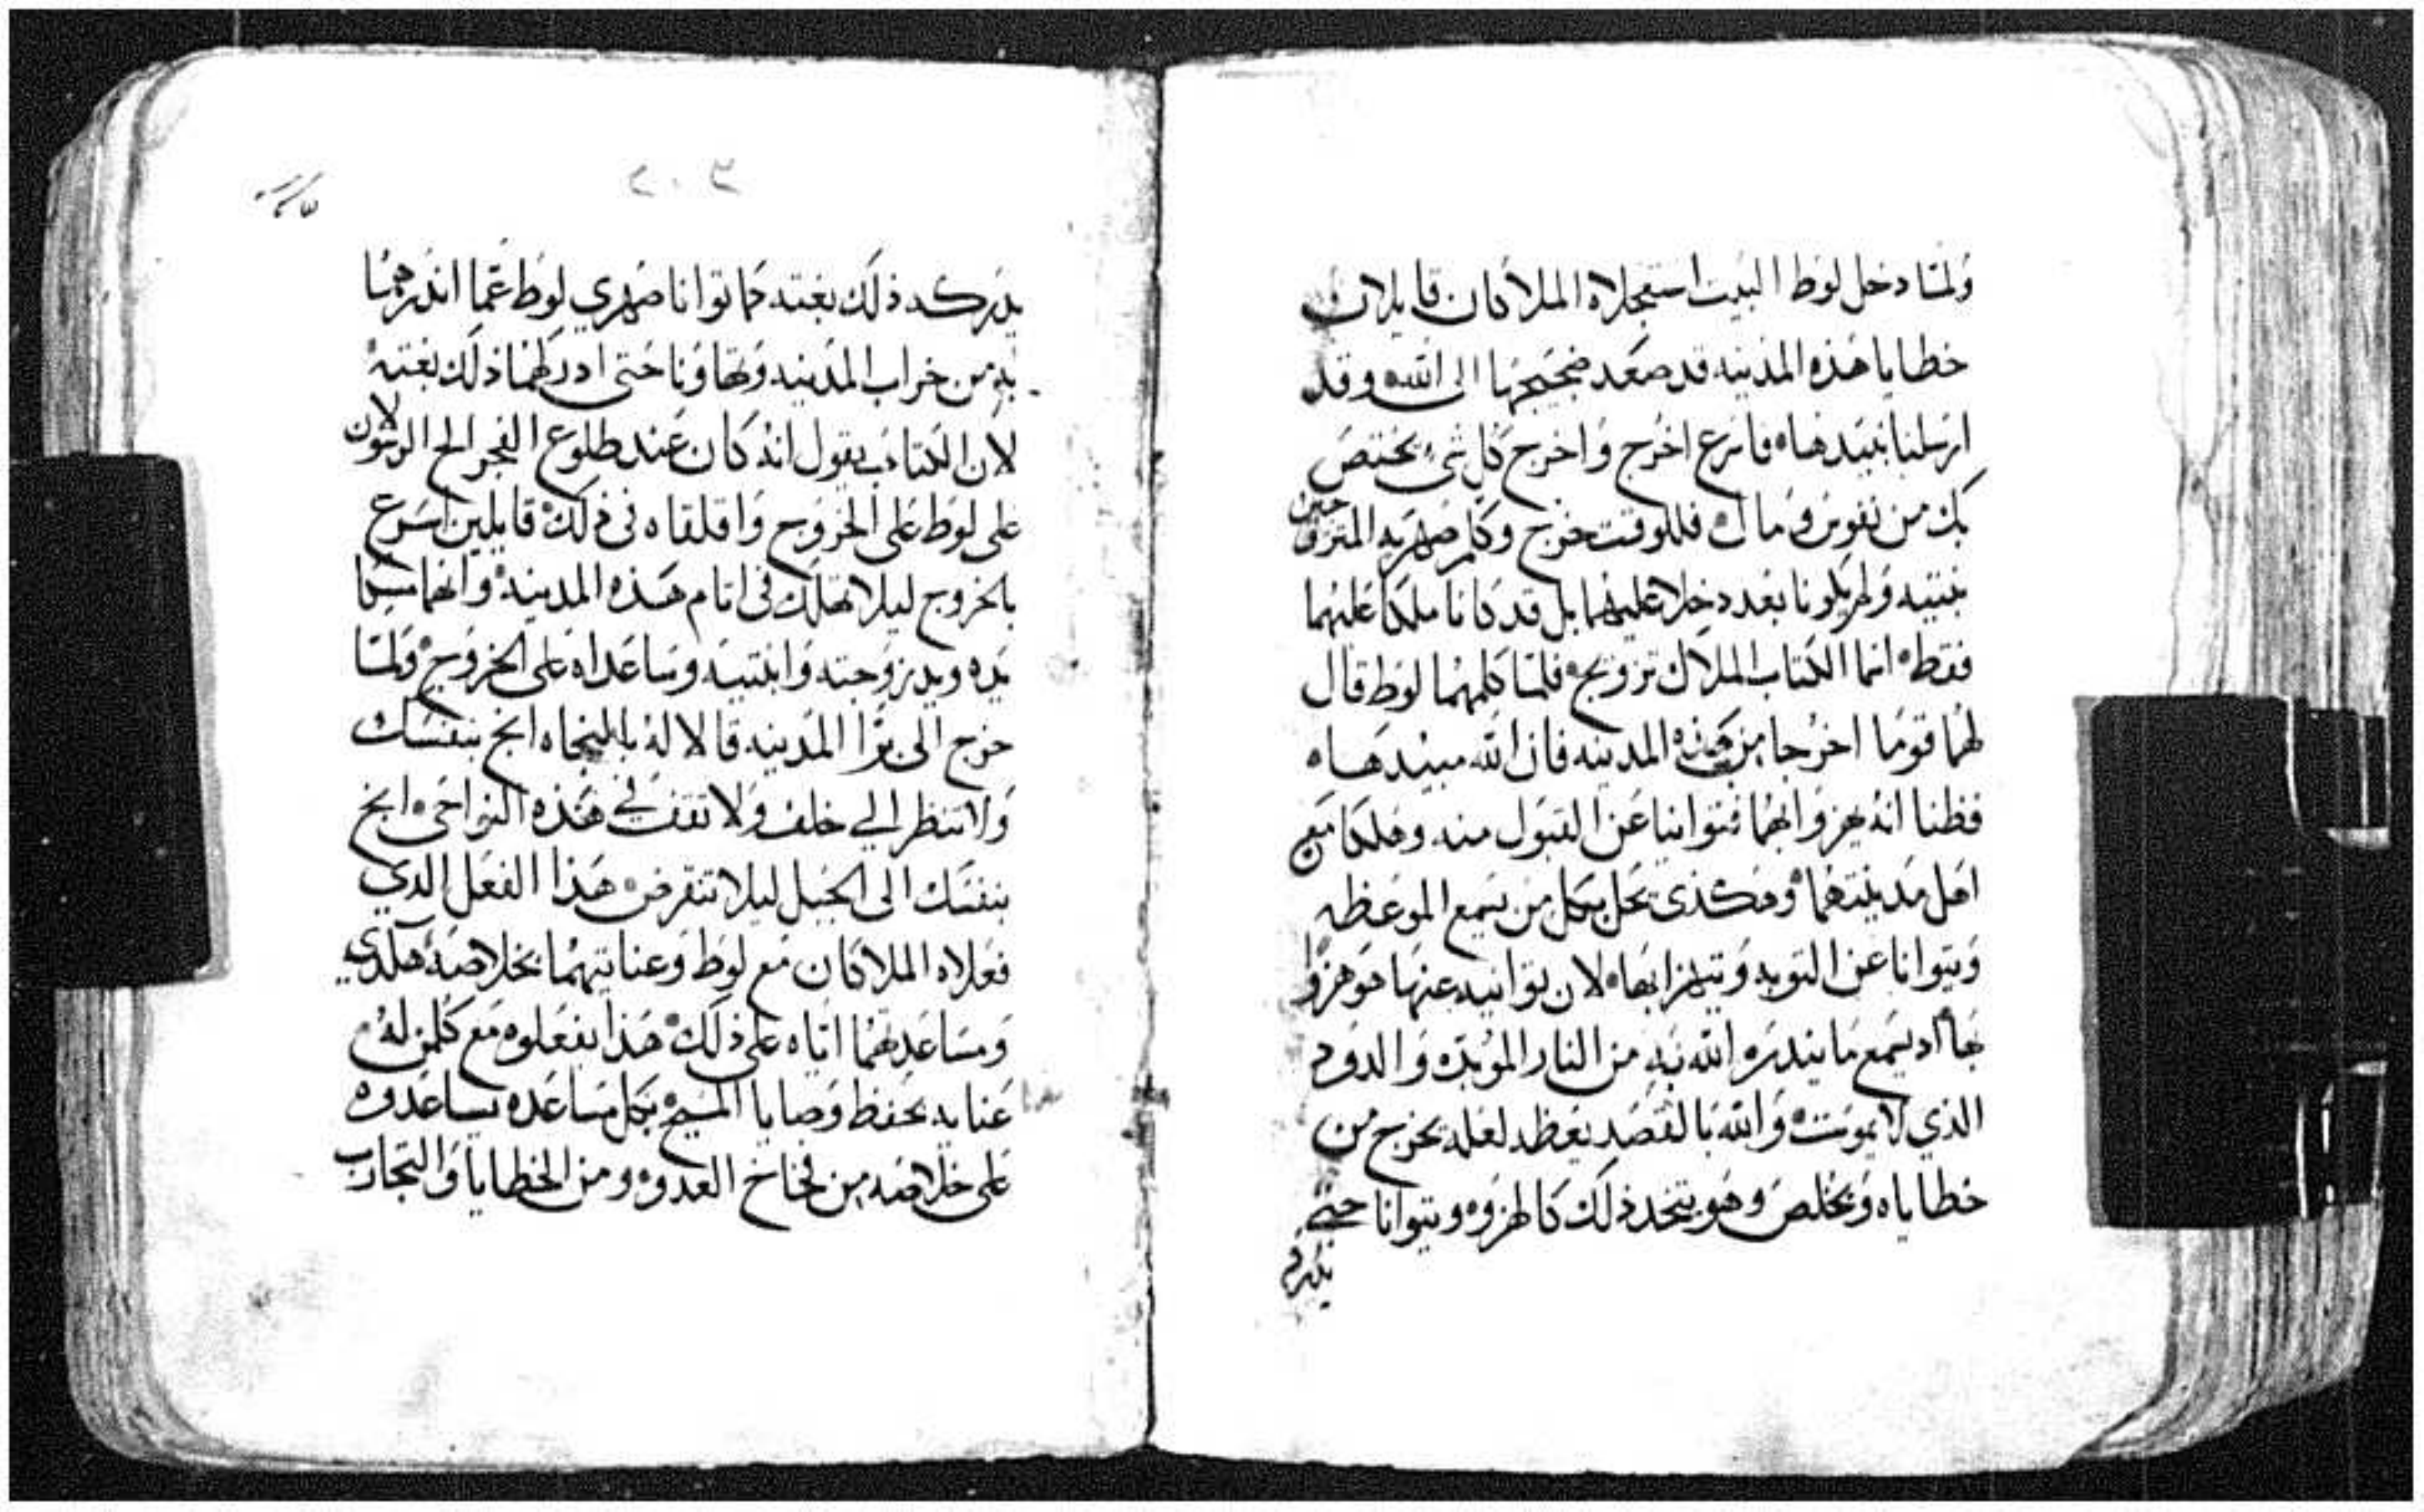 ولمّا دخل لوط البيت استعجلاه الملاكان قايلان
خطايا هذه المدينه قد صعد ضجيجها الى الله وقد
ارسلنا نبيدها فاسرع اخرج واخرج كل شئ يختص
بك من نفوس ومال فللوقت خرج وكلم صهريه المتزوجين
بنتيه ولم يكونا بعد دخلا عليهما بل قد كانا ملكا عليهما
فقط انما الكتاب الملاك تزويج فلما كلمهما لوط قال
لهما قوما اخرجا من هذه المدينه فان الله مبيدها
فظنا انه يهزوا بهما فتوانيا عن القبول منه وهلكا مع
اهل مدينتهما وهكذى يحل بكل من يسمع الموعظه
ويتوانا عن التوبه ويتهزا بها لان توانيه عنها هو هزوا
بها اد يسمع ما ينذره الله به من النار الموبده والدود
الذي لا يموت والله بالقصد يعظه لعله يخرج من
خطاياه ويخلص وهو يتخد ذلك كالهزوه ويتوانا حتى
يدركه
يدركه ذلك بغته كما توانا صهري لوط عمّا انذرهما
به من خراب المدينه وتهاونا حتى ادركهما ذلك بغته
لان الكتاب يقول انه كان عند طلوع الفجر الح الرسولان
على لوط على الخروج واقلقاه فى ذلك قايلين اسرع
بالخروج ليلا تهلك فى اتام هذه المدينه وانهما مسكا
يده ويد زوجته وابنتيه وساعداه على الخروج ولمّا
خرج الى برّا المدينه قالا له بالنجاه انج بنفسك
ولا تنظر الي خلف ولا تقف في هذه النواحى انج
بنفسك الى الجبل ليلا تنقرض هذا الفعل الدي
فعلاه الملاكان مع لوط وعنايتهما بخلاصه هكدي
ومساعدتهما اياه على ذلك هذا يفعلوه مع كلمن له
عنايه بحفظ وصايا المسيح بكل مساعده يساعدوه
على خلاصه من فخاخ العدو ومن الخطايا والتجارب